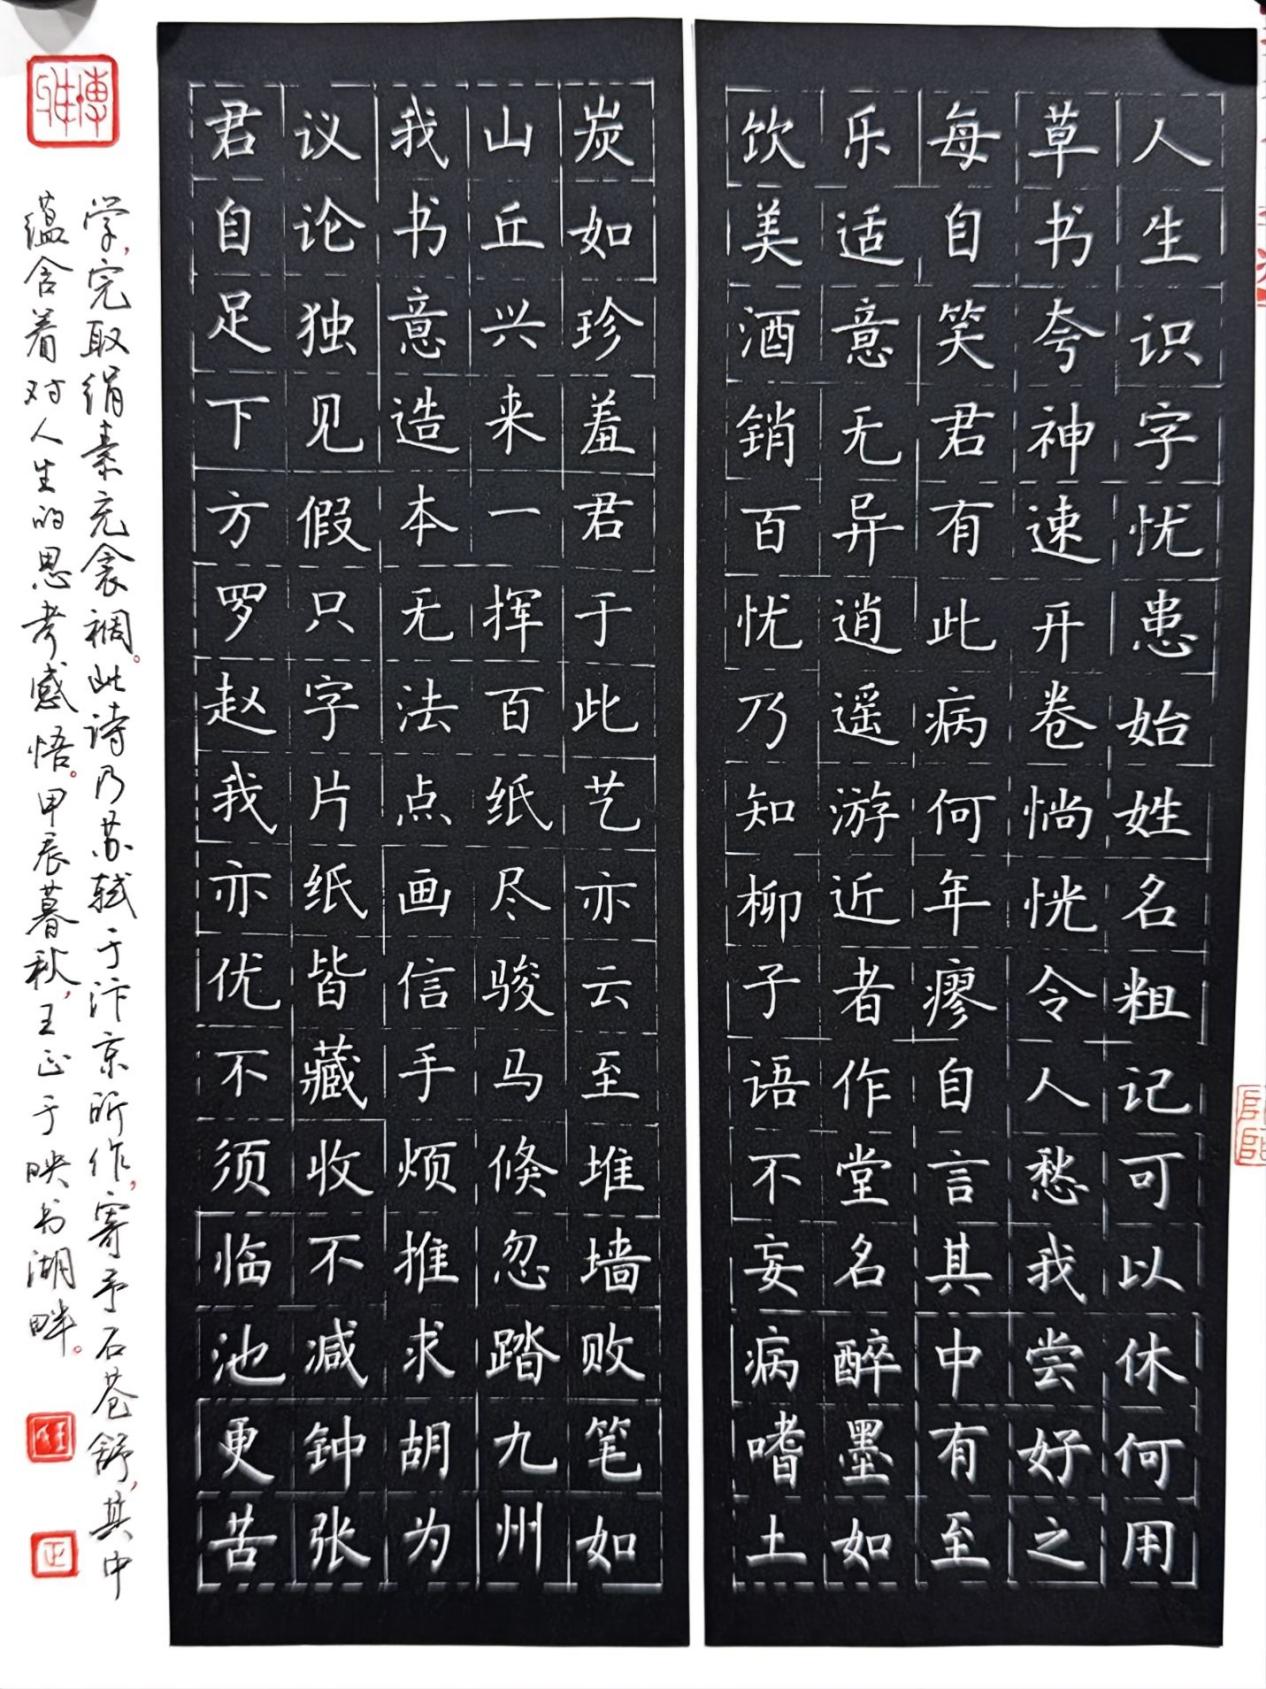 人生识字忧患始姓名粗记可以休何用
草书夸神速开卷惝恍令人愁我尝好之
每自笑君有此病何年瘳自言其中有至
乐适意无异逍遥游近者作堂名醉墨如
饮美酒销百忧乃知柳子语不妄病嗜土
炭如珍羞君于此艺亦云至堆墙败笔如
山丘兴来一挥百纸尽骏马倏忽踏九州
我书意造本无法点画信手烦推求胡为
议论独见假只字片纸皆藏收不减钟张
君自足下方罗赵我亦优不须临池更苦
学,完取绢素充衾裯。此诗乃苏轼于汴京所作,寄予石苍舒,其中
蕴含着对人生的思考感悟。甲辰暮秋,王正于映书湖畔。
正